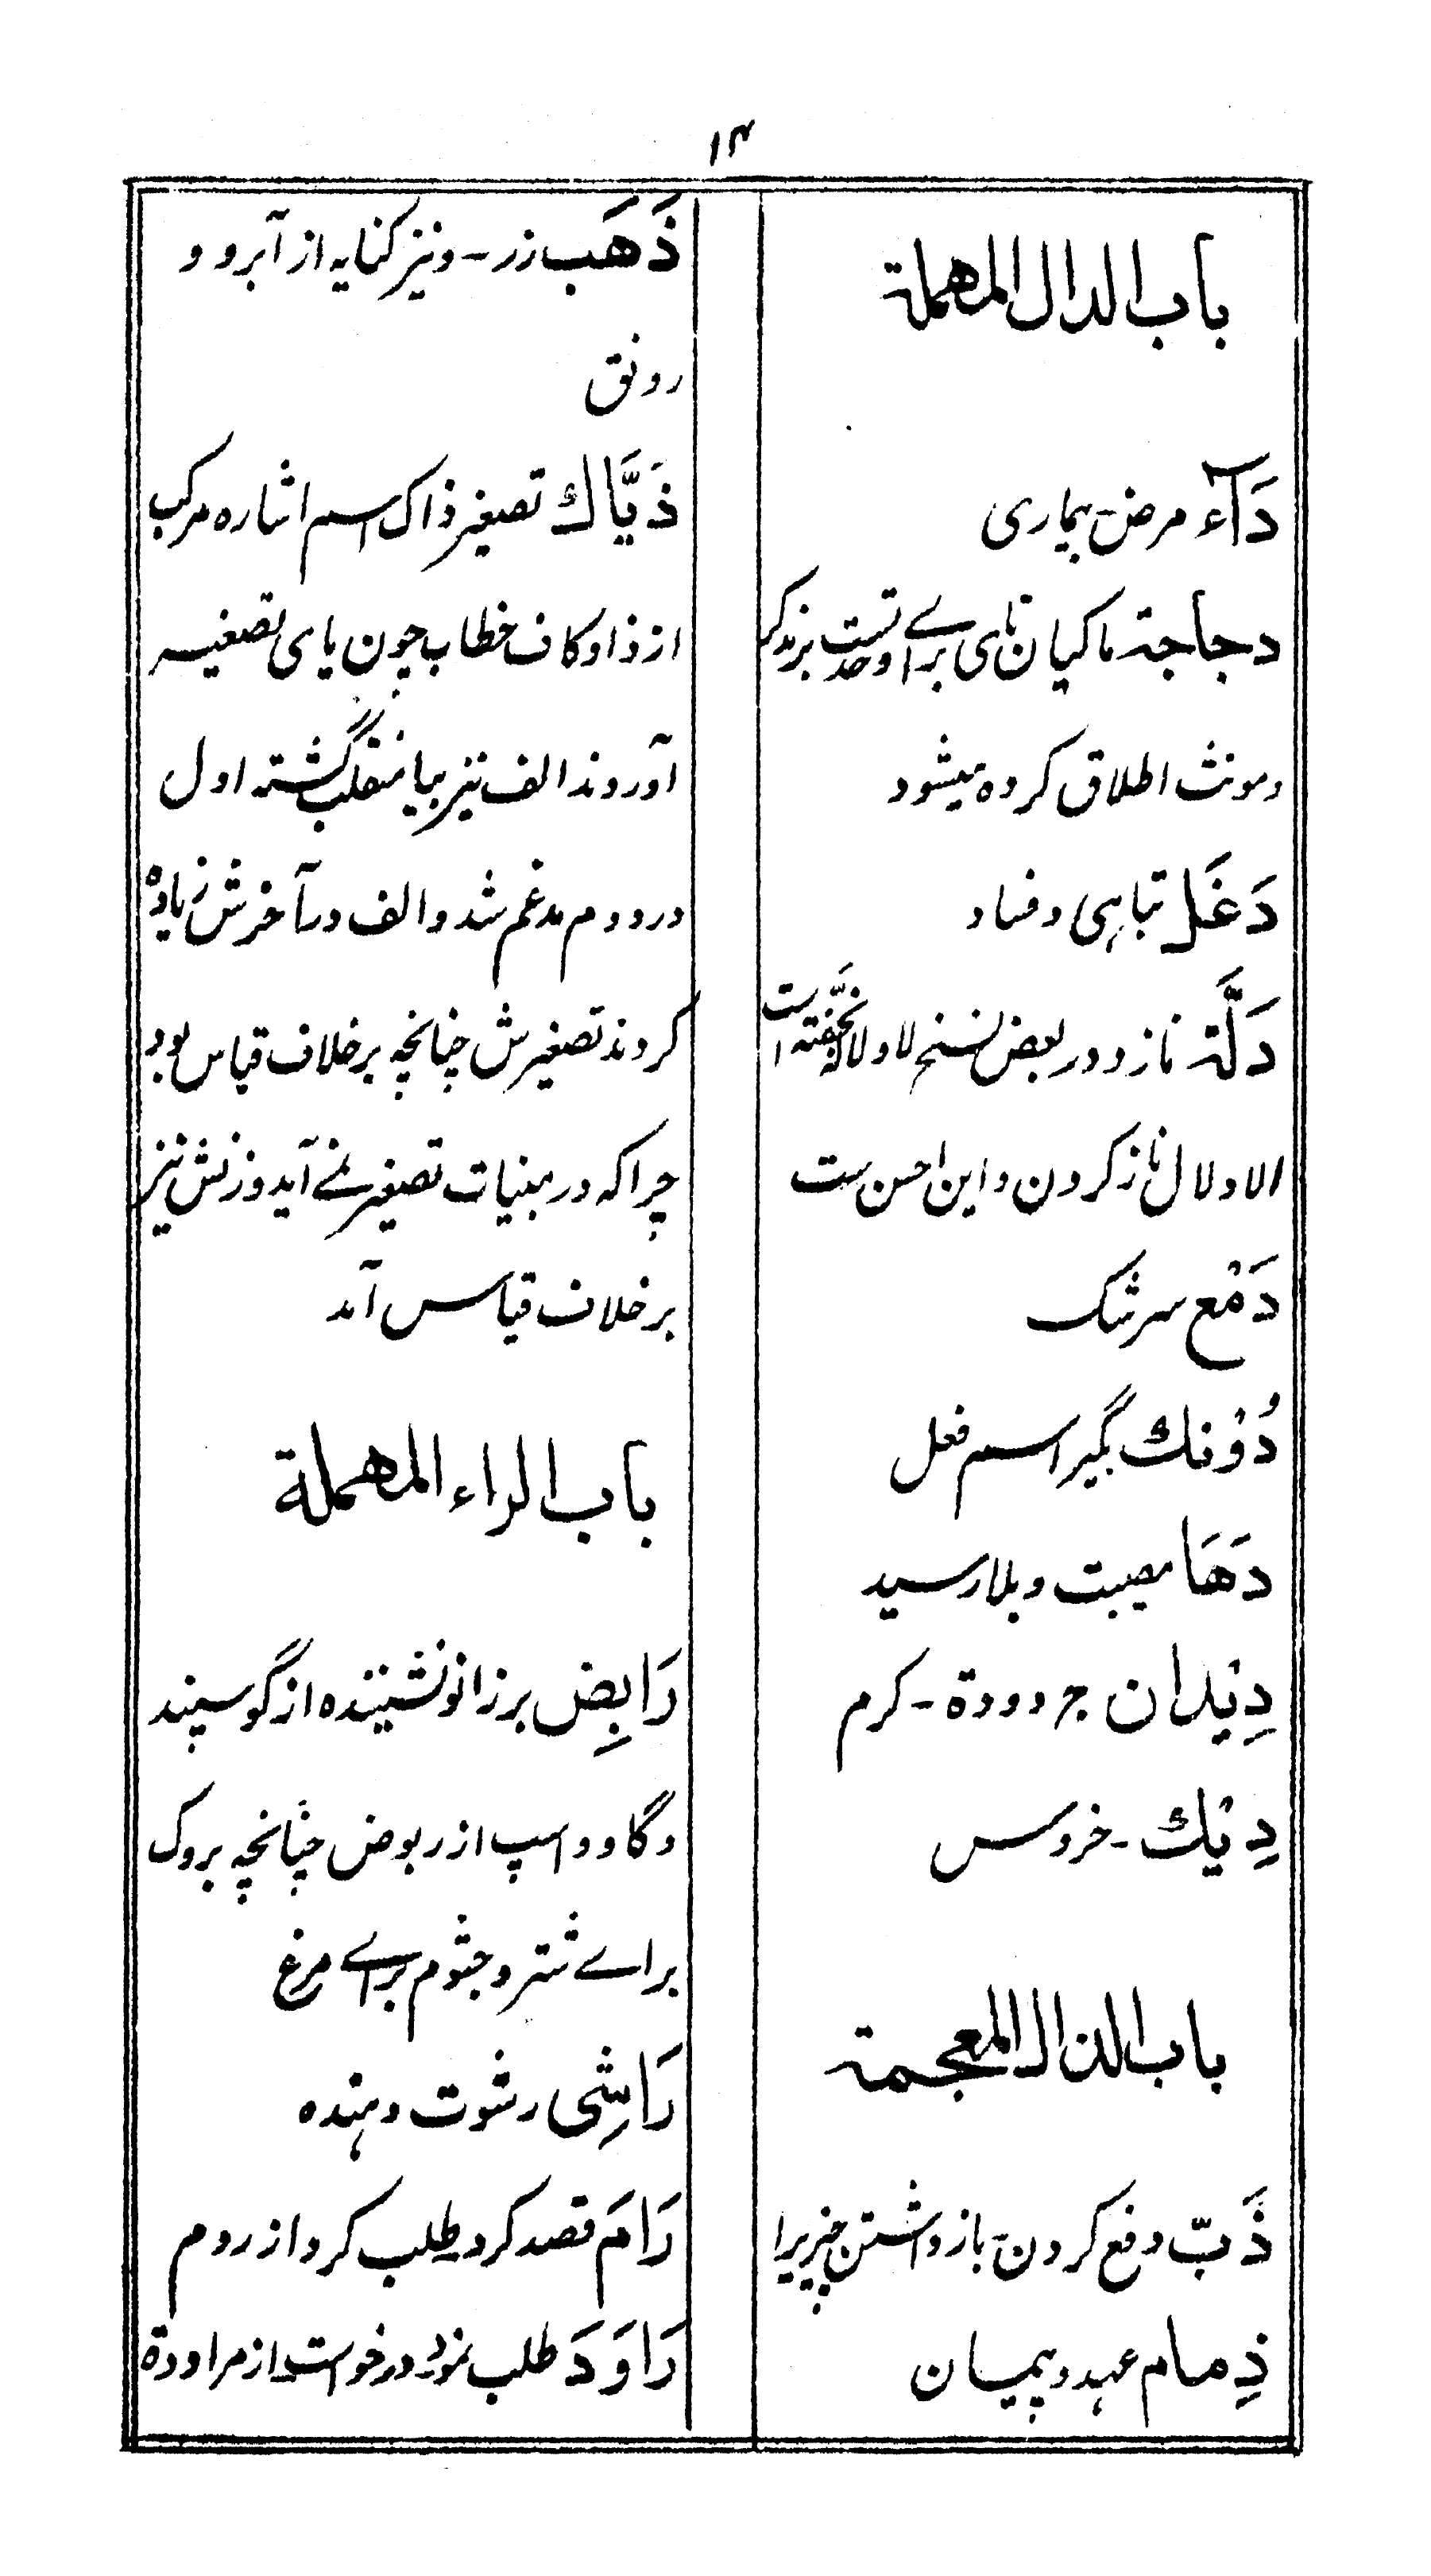 ۱۴
باب الدال المهملة
دَآء مرض۔ بیماری
دجاجة ماکیان تای برائے وحدتست بر مذکر
ومونث اطلاق کرده میشود
دَغَل تباہی وفساد
دَلَّة ناز ودر بعض نسخ
الادلال ناز کردن واین احسن ست
دَمْع سرشک
دُوْنك بگیر اسم فعل
دَهَا مصیبت وبلا رسید
دِیْدان ج دودة۔ کرم
دِیْك۔ خروس
باب الذال المعجمة
ذَبّ دفع کردن۔ بازداشتن چیزیرا
ذِمام عہد وپیمان
ذَهَب زر۔ ونیز کنایه از آبرو و
رونق
ذَیَّاك تصغیر ذاک اسم اشاره مرکب
از ذا وکاف خطاب چون یای تصغیر
آوردند الف نیز بیا منقلب گشته اول
در دوم مدغم شد والف در آخرش زیاده
کردند تصغیرش چنانچه برخلاف قیاس بود
چراکه در مبنیات تصغیر نمے آید وزنش نیز
برخلاف قیاس آمد
باب الراء المهملة
رَابِض برزانو نشیننده از گوسپند
وگاو و اسپ از ربوض چنانچه بروک
برائے شتر وجثوم برائے مرغ
رَاشِی رشوت دہنده
رَامَ قصد کرد طلب کرد از روم
رَاوَدَ طلب نمود درخواست از مراودة